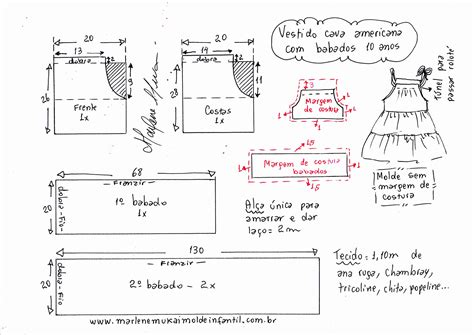 Vestido cava americana
com babados 10 anos
20
13
dobra
2
9
28
26
Frente
1x
20
14
dobra
2
11
28
Costas
1x
Marlene Mukai
3
Margem
de costura
1
1,5
Túnel para
passar rolotê
Margem de costura
babados
1
1,5
Molde sem
margem de
costura
68
Franzir
dobra-fio
20
1º babado
1x
Alça única para
amarrar e dar
laço = 2m
130
Franzir
dobra-fio
20
2º babado - 2x
Tecido = 1,10m de
ana ruga, chambray,
tricoline, chita, popeline...
www.marlenemukaimoldeinfantil.com.br